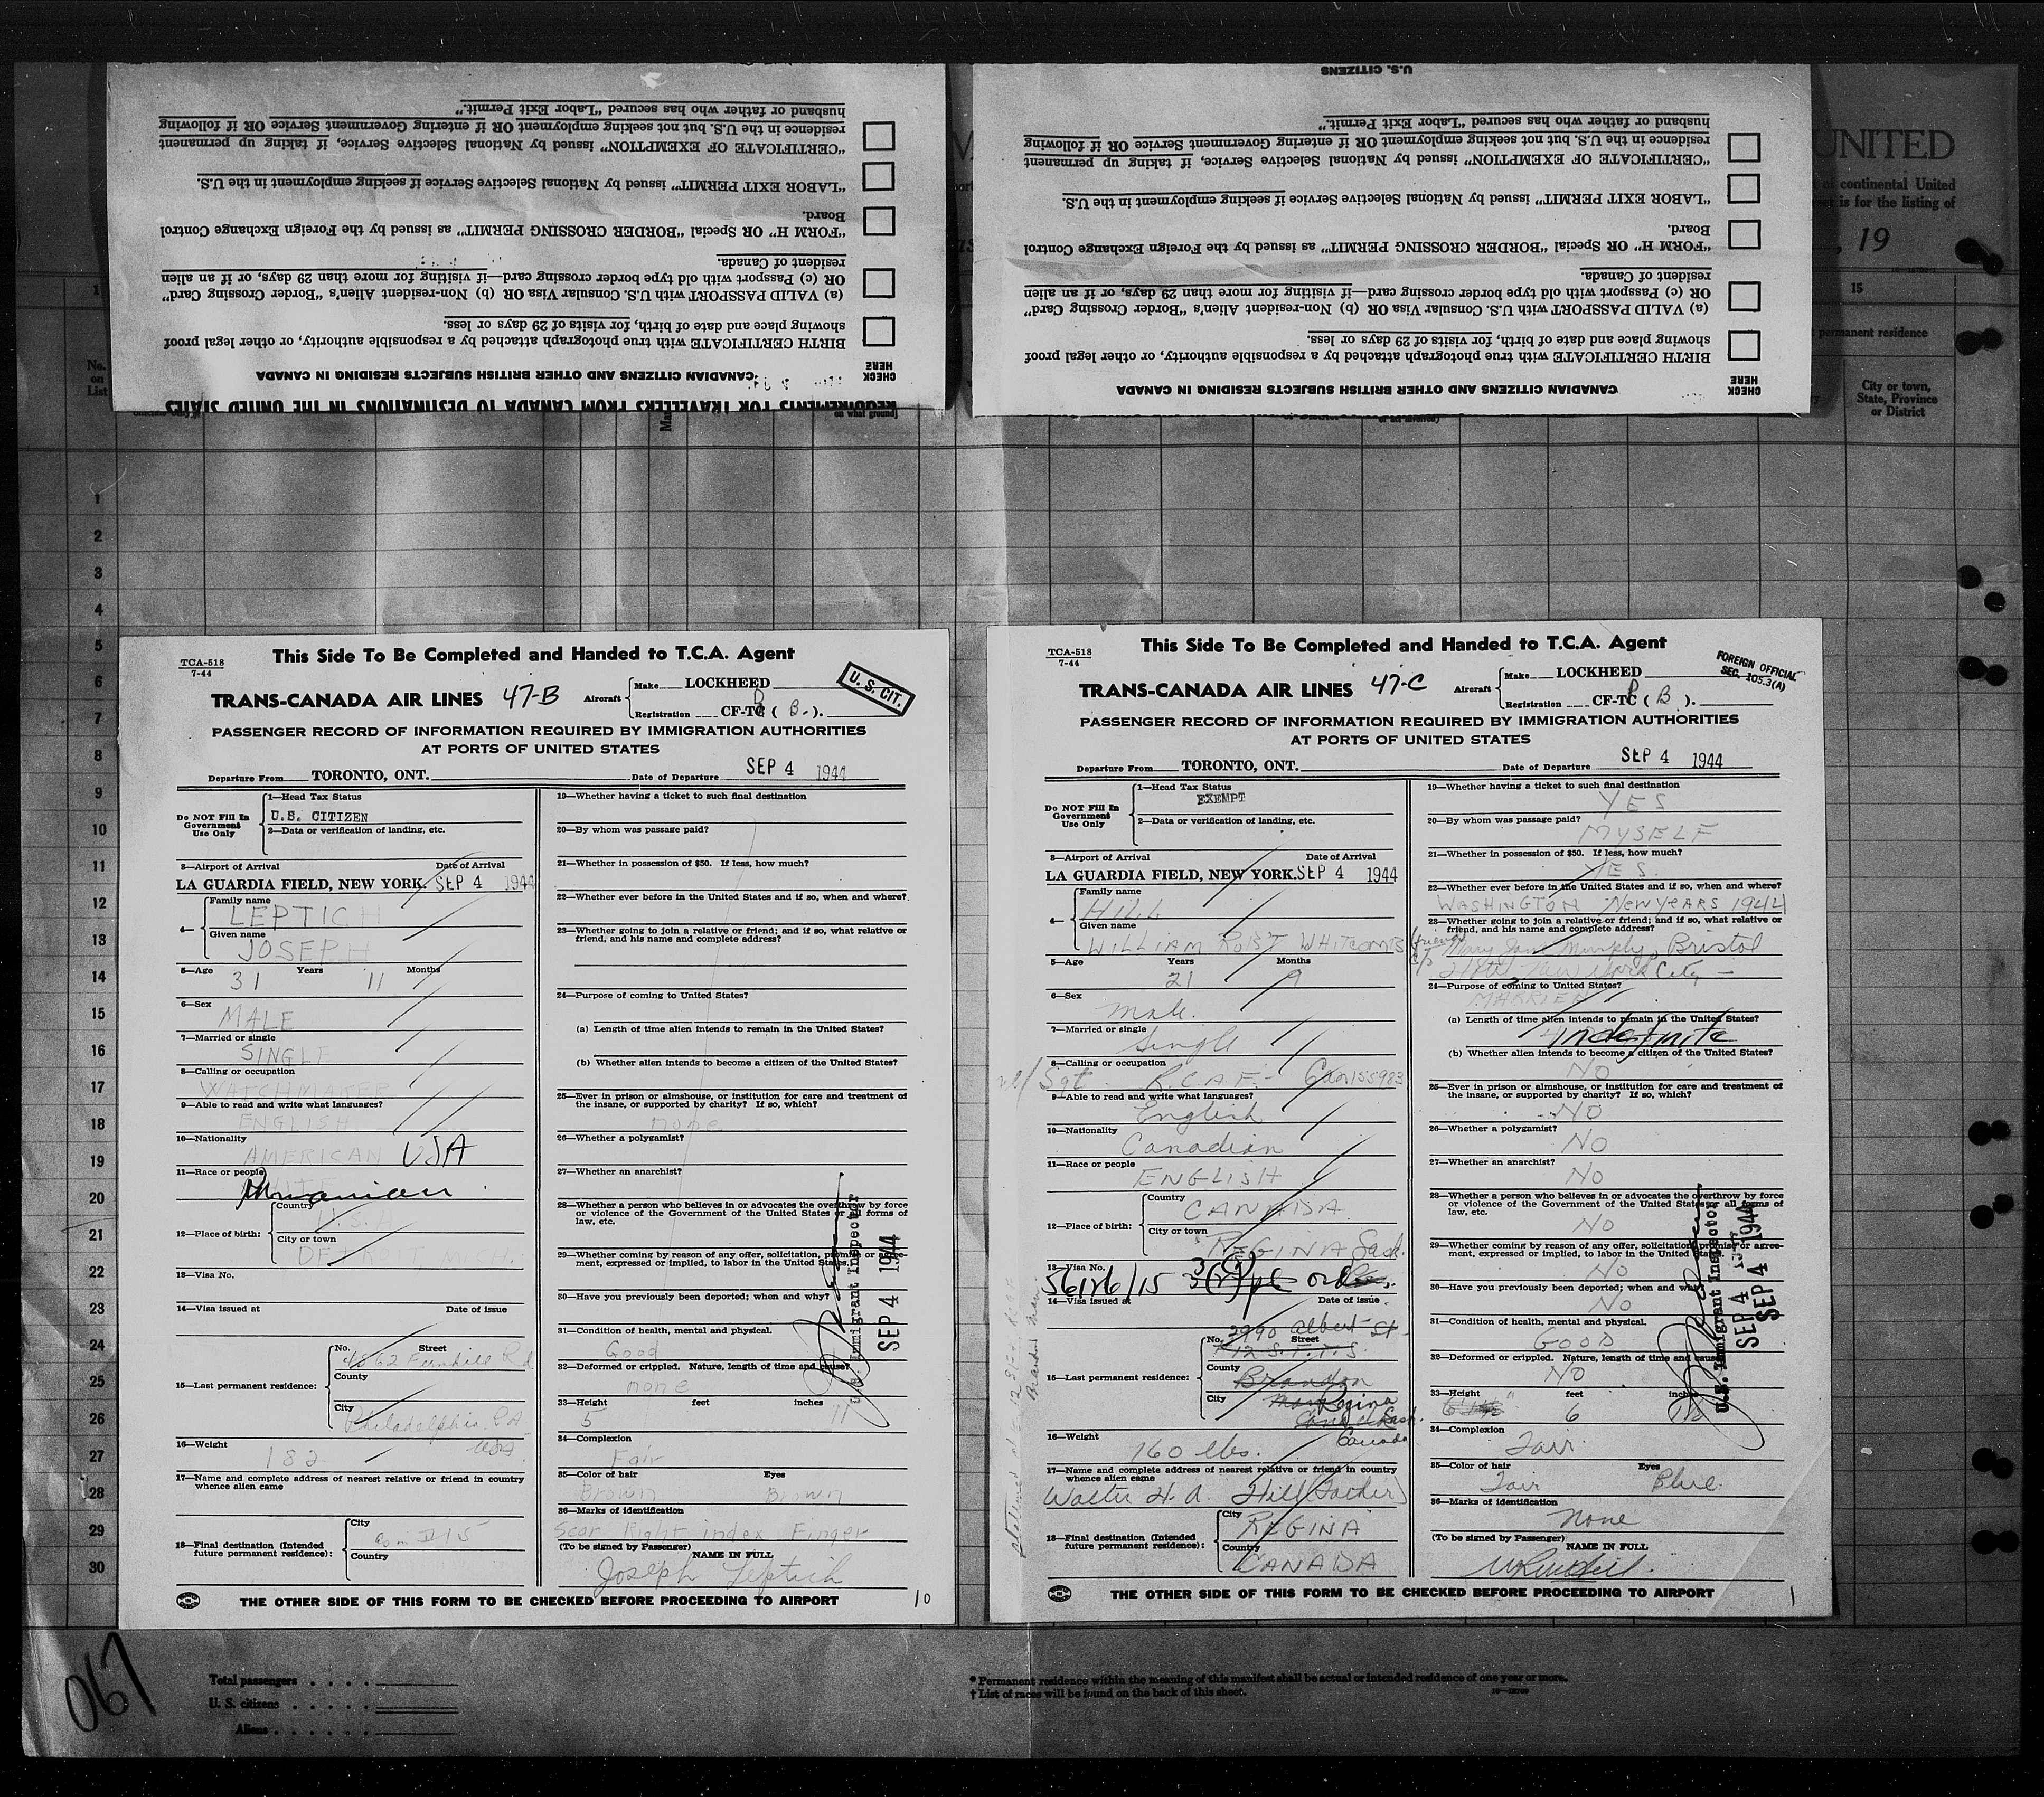 U.S. CITIZENS
husband or father who has secured "Labor Exit Permit."
residence in the U.S. but not seeking employment OR if entering Government Service OR if following
"CERTIFICATE OF EXEMPTION" issued by National Selective Service, if taking up permanent
"LABOR EXIT PERMIT" issued by National Selective Service if seeking employment in the U.S.
Board.
"FORM H" OR Special "BORDER CROSSING PERMIT" as issued by the Foreign Exchange Control
resident of Canada.
OR (c) Passport with old type border crossing card—if visiting for more than 29 days, or if an alien
(a) VALID PASSPORT with U.S. Consular Visa OR (b) Non-resident Alien's "Border Crossing Card"
showing place and date of birth, for visits of 29 days or less.
BIRTH CERTIFICATE with true photograph attached by a responsible authority, or other legal proof
CHECK HERE
CANADIAN CITIZENS AND OTHER BRITISH SUBJECTS RESIDING IN CANADA
REQUIREMENTS FOR TRAVELLERS FROM CANADA TO DESTINATIONS IN THE UNITED STATES
husband or father who has secured "Labor Exit Permit."
residence in the U.S. but not seeking employment OR if entering Government Service OR if following
"CERTIFICATE OF EXEMPTION" issued by National Selective Service, if taking up permanent
"LABOR EXIT PERMIT" issued by National Selective Service if seeking employment in the U.S.
Board.
"FORM H" OR Special "BORDER CROSSING PERMIT" as issued by the Foreign Exchange Control
resident of Canada.
OR (c) Passport with old type border crossing card—if visiting for more than 29 days, or if an alien
(a) VALID PASSPORT with U.S. Consular Visa OR (b) Non-resident Alien's "Border Crossing Card"
showing place and date of birth, for visits of 29 days or less.
BIRTH CERTIFICATE with true photograph attached by a responsible authority, or other legal proof
CHECK HERE
CANADIAN CITIZENS AND OTHER BRITISH SUBJECTS RESIDING IN CANADA
UNITED
of continental United
is for the listing of
, 19
15
permanent residence
City or town,
State, Province
or District
No.
on
List
on what ground]
1
2
3
4
5
6
7
8
9
10
11
12
13
14
15
16
17
18
19
20
21
22
23
24
25
26
27
28
29
30
This Side To Be Completed and Handed to T.C.A. Agent
TCA-518
7-44
TRANS-CANADA AIR LINES 47-B
Aircraft
Make LOCKHEED
Registration CF-TC ( B. ).
U. S. CIT.
PASSENGER RECORD OF INFORMATION REQUIRED BY IMMIGRATION AUTHORITIES
AT PORTS OF UNITED STATES
Departure From TORONTO, ONT. Date of Departure SEP 4 1944
Do NOT Fill In
Government
Use Only
1—Head Tax Status
U.S. CITIZEN
2—Data or verification of landing, etc.
3—Airport of Arrival Date of Arrival
LA GUARDIA FIELD, NEW YORK. SEP 4 1944
4—
Family name
LEPTICH
Given name
JOSEPH
5—Age Years Months
31 11
6—Sex
MALE
7—Married or single
SINGLE
8—Calling or occupation
WATCHMAKER
9—Able to read and write what languages?
ENGLISH
10—Nationality
AMERICAN USA
11—Race or people
12—Place of birth:
Country
U.S.A
City or town
DETROIT MICH.
13—Visa No.
14—Visa issued at Date of issue
15—Last permanent residence:
No. Street
4862 Fernhill Rd
County
City
Philadelphia PA
USA
16—Weight
182
17—Name and complete address of nearest relative or friend in country
whence alien came
18—Final destination (Intended
future permanent residence):
City
Country
19—Whether having a ticket to such final destination
20—By whom was passage paid?
21—Whether in possession of $50. If less, how much?
22—Whether ever before in the United States and if so, when and where?
23—Whether going to join a relative or friend; and if so, what relative or
friend, and his name and complete address?
24—Purpose of coming to United States?
(a) Length of time alien intends to remain in the United States?
(b) Whether alien intends to become a citizen of the United States?
25—Ever in prison or almshouse, or institution for care and treatment of
the insane, or supported by charity? If so, which?
none
26—Whether a polygamist?
27—Whether an anarchist?
28—Whether a person who believes in or advocates the overthrow by force
or violence of the Government of the United States or all forms of
law, etc.
29—Whether coming by reason of any offer, solicitation, promise or agree-
ment, expressed or implied, to labor in the United States.
30—Have you previously been deported; when and why?
31—Condition of health, mental and physical.
Good
32—Deformed or crippled. Nature, length of time and cause?
none
33—Height feet inches
5 11
34—Complexion
Fair
35—Color of hair Eyes
Brown Brown
36—Marks of identification
Scar Right index Finger
(To be signed by Passenger) NAME IN FULL
Joseph Leptich
U.S. Immigrant Inspector
SEP 4 1944
THE OTHER SIDE OF THIS FORM TO BE CHECKED BEFORE PROCEEDING TO AIRPORT
10
This Side To Be Completed and Handed to T.C.A. Agent
TCA-518
7-44
TRANS-CANADA AIR LINES 47-C
Aircraft
Make LOCKHEED
Registration CF-TC ( B ).
FOREIGN OFFICIAL
SEC. 105.3(A)
PASSENGER RECORD OF INFORMATION REQUIRED BY IMMIGRATION AUTHORITIES
AT PORTS OF UNITED STATES
Departure From TORONTO, ONT. Date of Departure SEP 4 1944
Do NOT Fill In
Government
Use Only
1—Head Tax Status
EXEMPT
2—Data or verification of landing, etc.
3—Airport of Arrival Date of Arrival
LA GUARDIA FIELD, NEW YORK. SEP 4 1944
4—
Family name
HILL
Given name
WILLIAM
5—Age Years Months
21 9
6—Sex
male.
7—Married or single
Single
8—Calling or occupation
Sgt R.C.A.F. - Can 155983
9—Able to read and write what languages?
English
10—Nationality
Canadian
11—Race or people
ENGLISH
12—Place of birth:
Country
CANADA
City or town
REGINA Sask.
13—Visa No.
14—Visa issued at Date of issue
15—Last permanent residence:
No. Street
2990 Albert St
County
Brandon
City
Regina
Sask.
Canada
16—Weight
160 lbs.
17—Name and complete address of nearest relative or friend in country
whence alien came
Walter H. A. Hill (Father)
18—Final destination (Intended
future permanent residence):
City
REGINA
Country
CANADA
19—Whether having a ticket to such final destination
YES
20—By whom was passage paid?
MYSELF
21—Whether in possession of $50. If less, how much?
YES.
22—Whether ever before in the United States and if so, when and where?
WASHINGTON NEW YEARS 1944
23—Whether going to join a relative or friend; and if so, what relative or
friend, and his name and complete address?
(friend) Mary Jane Murphy, Bristol
Hotel New York City —
24—Purpose of coming to United States?
(a) Length of time alien intends to remain in the United States?
Indefinite
(b) Whether alien intends to become a citizen of the United States?
NO
25—Ever in prison or almshouse, or institution for care and treatment of
the insane, or supported by charity? If so, which?
NO
26—Whether a polygamist?
NO
27—Whether an anarchist?
NO
28—Whether a person who believes in or advocates the overthrow by force
or violence of the Government of the United States or all forms of
law, etc.
NO
29—Whether coming by reason of any offer, solicitation, promise or agree-
ment, expressed or implied, to labor in the United States.
NO
30—Have you previously been deported; when and why?
NO
31—Condition of health, mental and physical.
GOOD
32—Deformed or crippled. Nature, length of time and cause?
NO
33—Height feet inches
6
34—Complexion
Fair
35—Color of hair Eyes
Fair Blue.
36—Marks of identification
None
(To be signed by Passenger) NAME IN FULL
U.S. Immigrant Inspector
SEP 4 1944
SEP 4
THE OTHER SIDE OF THIS FORM TO BE CHECKED BEFORE PROCEEDING TO AIRPORT
1
067
Total passengers
U. S. citizens
Aliens
* Permanent residence within the meaning of this manifest shall be actual or intended residence of one year or more.
† List of races will be found on the back of this sheet.